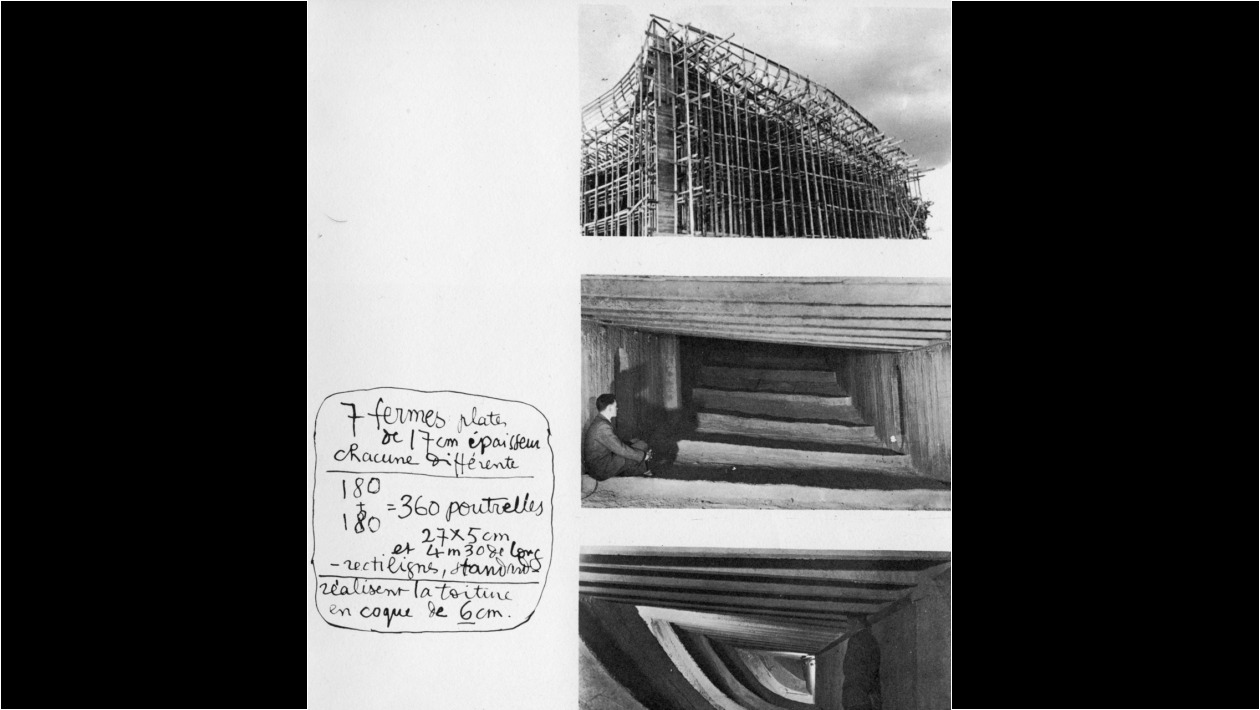 7 fermes plates
de 17 cm épaisseur
chacune différente
180
+
180
= 360 poutrelles
27 × 5 cm
et 4 m 30 de long
- rectilignes, standard -
réalisent la toiture
en coque de 6 cm.